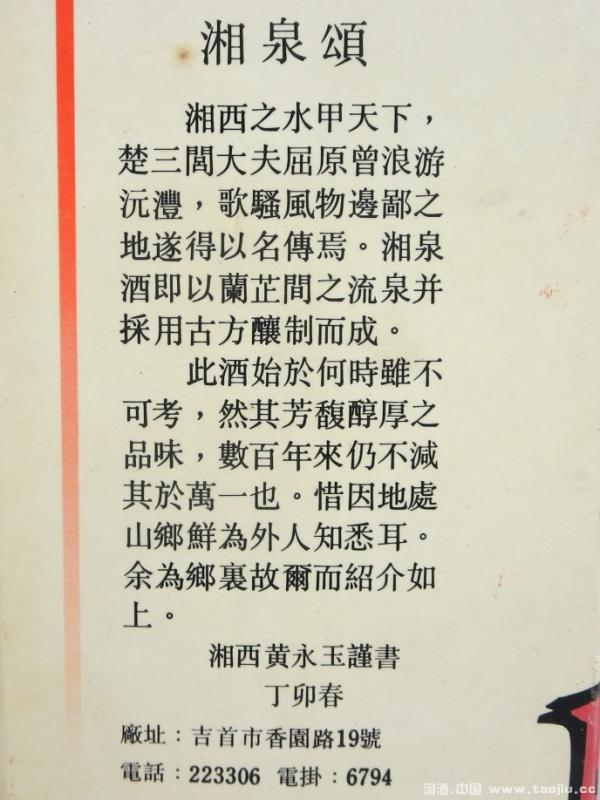 湘泉頌
湘西之水甲天下，
楚三閭大夫屈原曾浪游
沅灃，歌騷風物邊鄙之
地遂得以名傳焉。湘泉
酒即以蘭芷間之流泉并
採用古方釀制而成。
此酒始於何時雖不
可考，然其芳馥醇厚之
品味，數百年來仍不減
其於萬一也。惜因地處
山鄉鮮為外人知悉耳。
余為鄉裏故爾而紹介如
上。
湘西黃永玉謹書
丁卯春
廠址：吉首市香園路19號
電話：223306 電掛：6794
淘酒.中国 www.taojiu.cc